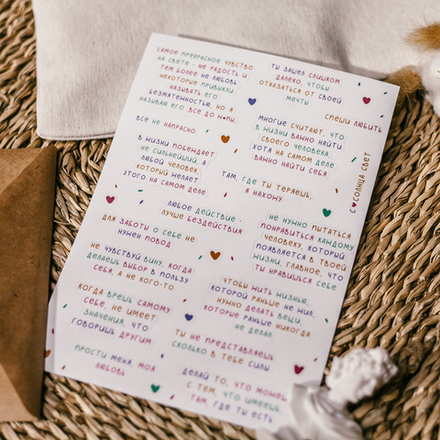 самое прекрасное чувство
на свете - не радость и
тем более не любовь
некоторые привыкли
называть его
безмятежностью, но я
называю его „все до ж*пы„
все не напрасно
в жизни побеждает
не сильнейший, а
любой человек,
который нелает
этого на самом деле
любое действие -
лучше бездействия
для заботы о себе не
нужен повод
не чувствуй вину, когда
делаешь выбор в пользу
себя, а не кого-то
когда врешь самому
себе, не имеет
значения, что
говоришь другим
прости меня, моя
любовь
ты зашел слишком
далеко, чтобы
отказаться от своей
мечты
спеши любить
многие считают, что
в жизни важно найти
своего человека,
хотя на самом деле
важно найти себя
там, где ты теряешь,
я нахожу
с солнца свет
не нужно пытаться
понравиться каждому
человеку, который
появляется в твоей
жизни, главное, что
ты нравишься себе
чтобы жить жизнью,
которой раньше не жил,
нужно делать вещи,
которые раньше никогда
не делал
ты не представляешь
сколько в тебе силы
делай то, что можешь
с тем, что имеешь,
там, где ты есть